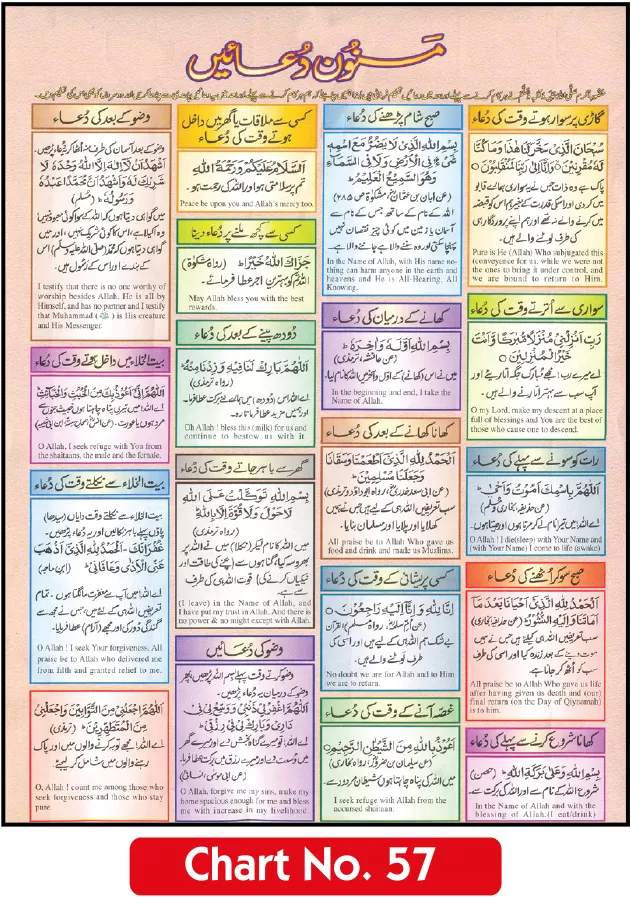 مسنون دُعائیں
گاڑی پر سوار ہوتے وقت کی دُعاء
سُبْحَانَ الَّذِیْ سَخَّرَلَنَا هٰذَا وَمَا كُنَّا
لَهٗ مُقْرِنِیْنَ ○ وَاِنَّآ اِلٰی رَبِّنَا لَمُنْقَلِبُوْنَ ○
پاک ہے وہ ذات جس نے یہ سواری ہمارے قابو
میں کر دی اور اسکی قدرت کے بغیر ہم اس کو قبضہ
میں کرنے والے نہ تھے اور ہم اپنے پروردگار ہی
کی طرف لوٹنے والے ہیں۔
Pure is He (Allah) Who subjugated this
(conveyance for us, while we were not
the ones to bring it under control, and
we are bound to return to Him.
سواری سے اُترتے وقت کی دُعاء
رَبِّ اَنْزِلْنِیْ مُنْزَلًا مُّبَارَكًا وَّاَنْتَ
خَیْرُ الْمُنْزِلِیْنَ ○
اے میرے رب مجھے مُبارک جگہ اُتاریئے اور
آپ سب سے بہتر اُتارنے والے ہیں۔
O my Lord, make my descent at a place
full of blessings and You are the best of
those who cause one to descend.
رات کو سونے سے پہلے کی دُعاء
اَللّٰهُمَّ بِاسْمِكَ اَمُوْتُ وَاَحْیٰی
O Allah! I die(sleep) with Your Name and
(with Your Name) I come to life (awake)
صبح سو کر اُٹھنے کی دُعاء
اَلْحَمْدُ لِلّٰهِ الَّذِیْ اَحْیَانَا بَعْدَ مَا
اَمَاتَنَا وَاِلَیْهِ النُّشُوْرُ
سب تعریفیں اللہ ہی کیلئے ہیں جس نے ہمیں
موت دینے کے بعد زندہ کیا اور اسی کی طرف
سب کو اُٹھ کر جانا ہے
All praise be to Allah Who gave us life
after having given us death and (our)
final return (on the Day of Qiyamah)
is to him.
کھانا شروع کرنے سے پہلے کی دُعاء
بِسْمِ اللّٰهِ وَعَلٰی بَرَكَةِ اللّٰهِ
شروع اللہ کے نام سے اور اللہ کی برکت سے۔
In the Name of Allah and with the
blessing of Allah.(I eat/drink)
صبح شام پڑھنے کی دُعاء
بِسْمِ اللّٰهِ الَّذِیْ لَا یَضُرُّ مَعَ اسْمِهٖ
شَیْءٌ فِی الْاَرْضِ وَلَا فِی السَّمَآءِ
وَهُوَ السَّمِیْعُ الْعَلِیْمُ
آسمان یا زمین میں کوئی چیز نقصان نہیں
پہنچا سکتی اور وہ سننے والا ہے جاننے والا ہے۔
In the Name of Allah, with His name no-
thing can harm anyone in the earth and
heavens and He is All-Hearing, All
Knowing.
کھانے کے درمیان کی دُعاء
بِسْمِ اللّٰهِ اَوَّلَهٗ وَاٰخِرَهٗ
In the beginning and end, I take the
Name of Allah.
کھانا کھانے کے بعد کی دُعاء
اَلْحَمْدُ لِلّٰهِ الَّذِیْ اَطْعَمَنَا وَسَقَانَا
وَجَعَلَنَا مُسْلِمِیْنَ
سب تعریفیں اللہ ہی کے لیے ہیں جس نے ہمیں
کھلایا اور پلایا اور مسلمان بنایا۔
All praise be to Allah Who gave us
food and drink and made us Muslims.
کسی پریشانی کے وقت کی دُعاء
اِنَّا لِلّٰهِ وَاِنَّآ اِلَیْهِ رَاجِعُوْنَ ○
بے شک ہم اللہ ہی کے ہیں اور اسی کی
طرف لوٹنے والے ہیں۔
No doubt we are for Allah and to Him
we are to return.
غصّہ آنے کے وقت کی دُعاء
اَعُوْذُ بِاللّٰهِ مِنَ الشَّیْطٰنِ الرَّجِیْمِ
میں اللہ کی پناہ چاہتا ہوں شیطان مردود سے۔
I seek refuge with Allah from the
accursed shaitaan.
کسی سے ملاقات یا گھر میں داخل
ہوتے وقت کی دُعاء
اَلسَّلَامُ عَلَیْكُمْ وَرَحْمَةُ اللّٰهِ
تم پر سلامتی ہو اور اللہ کی رحمت ہو۔
Peace be upon you and Allah's mercy too.
کسی سے کچھ ملنے پر دُعاء دینا
جَزَاكَ اللّٰهُ خَیْرًا (رواہ مشکوٰۃ)
اللہ تم کو بہترین اجر عطا فرمائے۔
May Allah bless you with the best
rewards.
دُودھ پینے کے بعد کی دُعاء
اَللّٰهُمَّ بَارِكْ لَنَا فِیْهِ وَزِدْنَا مِنْهُ
(رواہ ترمذی)
Oh Allah! bless this (milk) for us and
continue to bestow us with it.
گھر سے باہر جاتے وقت کی دُعاء
بِسْمِ اللّٰهِ تَوَكَّلْتُ عَلَی اللّٰهِ
لَاحَوْلَ وَلَا قُوَّةَ اِلَّا بِاللّٰهِ
(رواہ ترمذی)
میں اللہ کا نام لیکر (نکلا) میں نے اللہ پر
بھروسہ کیا، گناہوں سے (بچنے کی طاقت اور
نیکیاں کرنے کی) قوت اللہ ہی کی طرف
سے ہے۔
(I leave) in the Name of Allah, and
I have put my trust in Allah. And there is
no power & no might except with Allah.
وضو کی دُعائیں
وضو کرتے وقت پہلے بسم اللہ پڑھیں، پھر
وضو کے درمیان یہ دُعاء پڑھیں۔
اَللّٰهُمَّ اغْفِرْلِیْ ذَنْبِیْ وَوَسِّعْ لِیْ فِیْ
دَارِیْ وَبَارِكْ لِیْ فِیْ رِزْقِیْ
O Allah, forgive me my sins, make my
home spacious enough for me and bless
me with increase in my livelihood
وضو کے بعد کی دُعاء
وضو کے بعد آسمان کی طرف منہ اُٹھا کر دُعاء پڑھیں۔
اَشْهَدُ اَنْ لَّا اِلٰهَ اِلَّا اللّٰهُ وَحْدَهٗ لَا
شَرِیْكَ لَهٗ وَاَشْهَدُ اَنَّ مُحَمَّدًا عَبْدُهٗ
وَرَسُوْلُهٗ (مسلم)
میں گواہی دیتا ہوں کہ اللہ کے سوا کوئی معبود نہیں
ہے، اکیلا ہے اس کا کوئی شریک نہیں، اور میں
گواہی دیتا ہوں کہ محمد (صلی اللہ علیہ وسلم) اس
کے بندے اور اس کے رسُول ہیں۔
I testify that there is no one worthy of
worship besides Allah. He is all by
Himself, and has no partner and I testify
that Muhammad (ﷺ) is His creature
and His Messenger.
بیت الخلاء میں داخل ہوتے وقت کی دُعاء
اَللّٰهُمَّ اِنِّیْ اَعُوْذُبِكَ مِنَ الْخُبُثِ وَالْخَبَآئِثِ
O Allah, I seek refuge with You from
the shaitaans, the male and the female.
بیت الخلاء سے نکلتے وقت کی دُعاء
بیت الخلاء سے نکلتے وقت دایاں (سیدھا)
پاؤں پہلے باہر نکالیں اور یہ دُعاء پڑھیں۔
غُفْرَانَكَ - اَلْحَمْدُ لِلّٰهِ الَّذِیْ اَذْهَبَ
عَنِّی الْاَذٰی وَعَافَانِیْ (ابن ماجہ)
اے اللہ میں آپ سے مغفرت مانگتا ہوں۔ تمام
تعریفیں اللہ ہی کے لئے ہیں، جس نے مجھ سے
گندگی دُور کی اور مجھے (آرام) عطا فرمایا۔
O Allah ! I seek Your forgiveness. All
praise be to Allah who delivered me
from filth and granted relief to me.
اَللّٰهُمَّ اجْعَلْنِیْ مِنَ التَّوَّابِیْنَ وَاجْعَلْنِیْ
مِنَ الْمُتَطَهِّرِیْنَ (ترمذی)
اے اللہ! مجھے توبہ کرنے والوں میں اور پاک
رہنے والوں میں شامل کر لیجئے
O. Allah ! count me among those who
seek forgiveness and those who stay
pure.
Chart No. 57